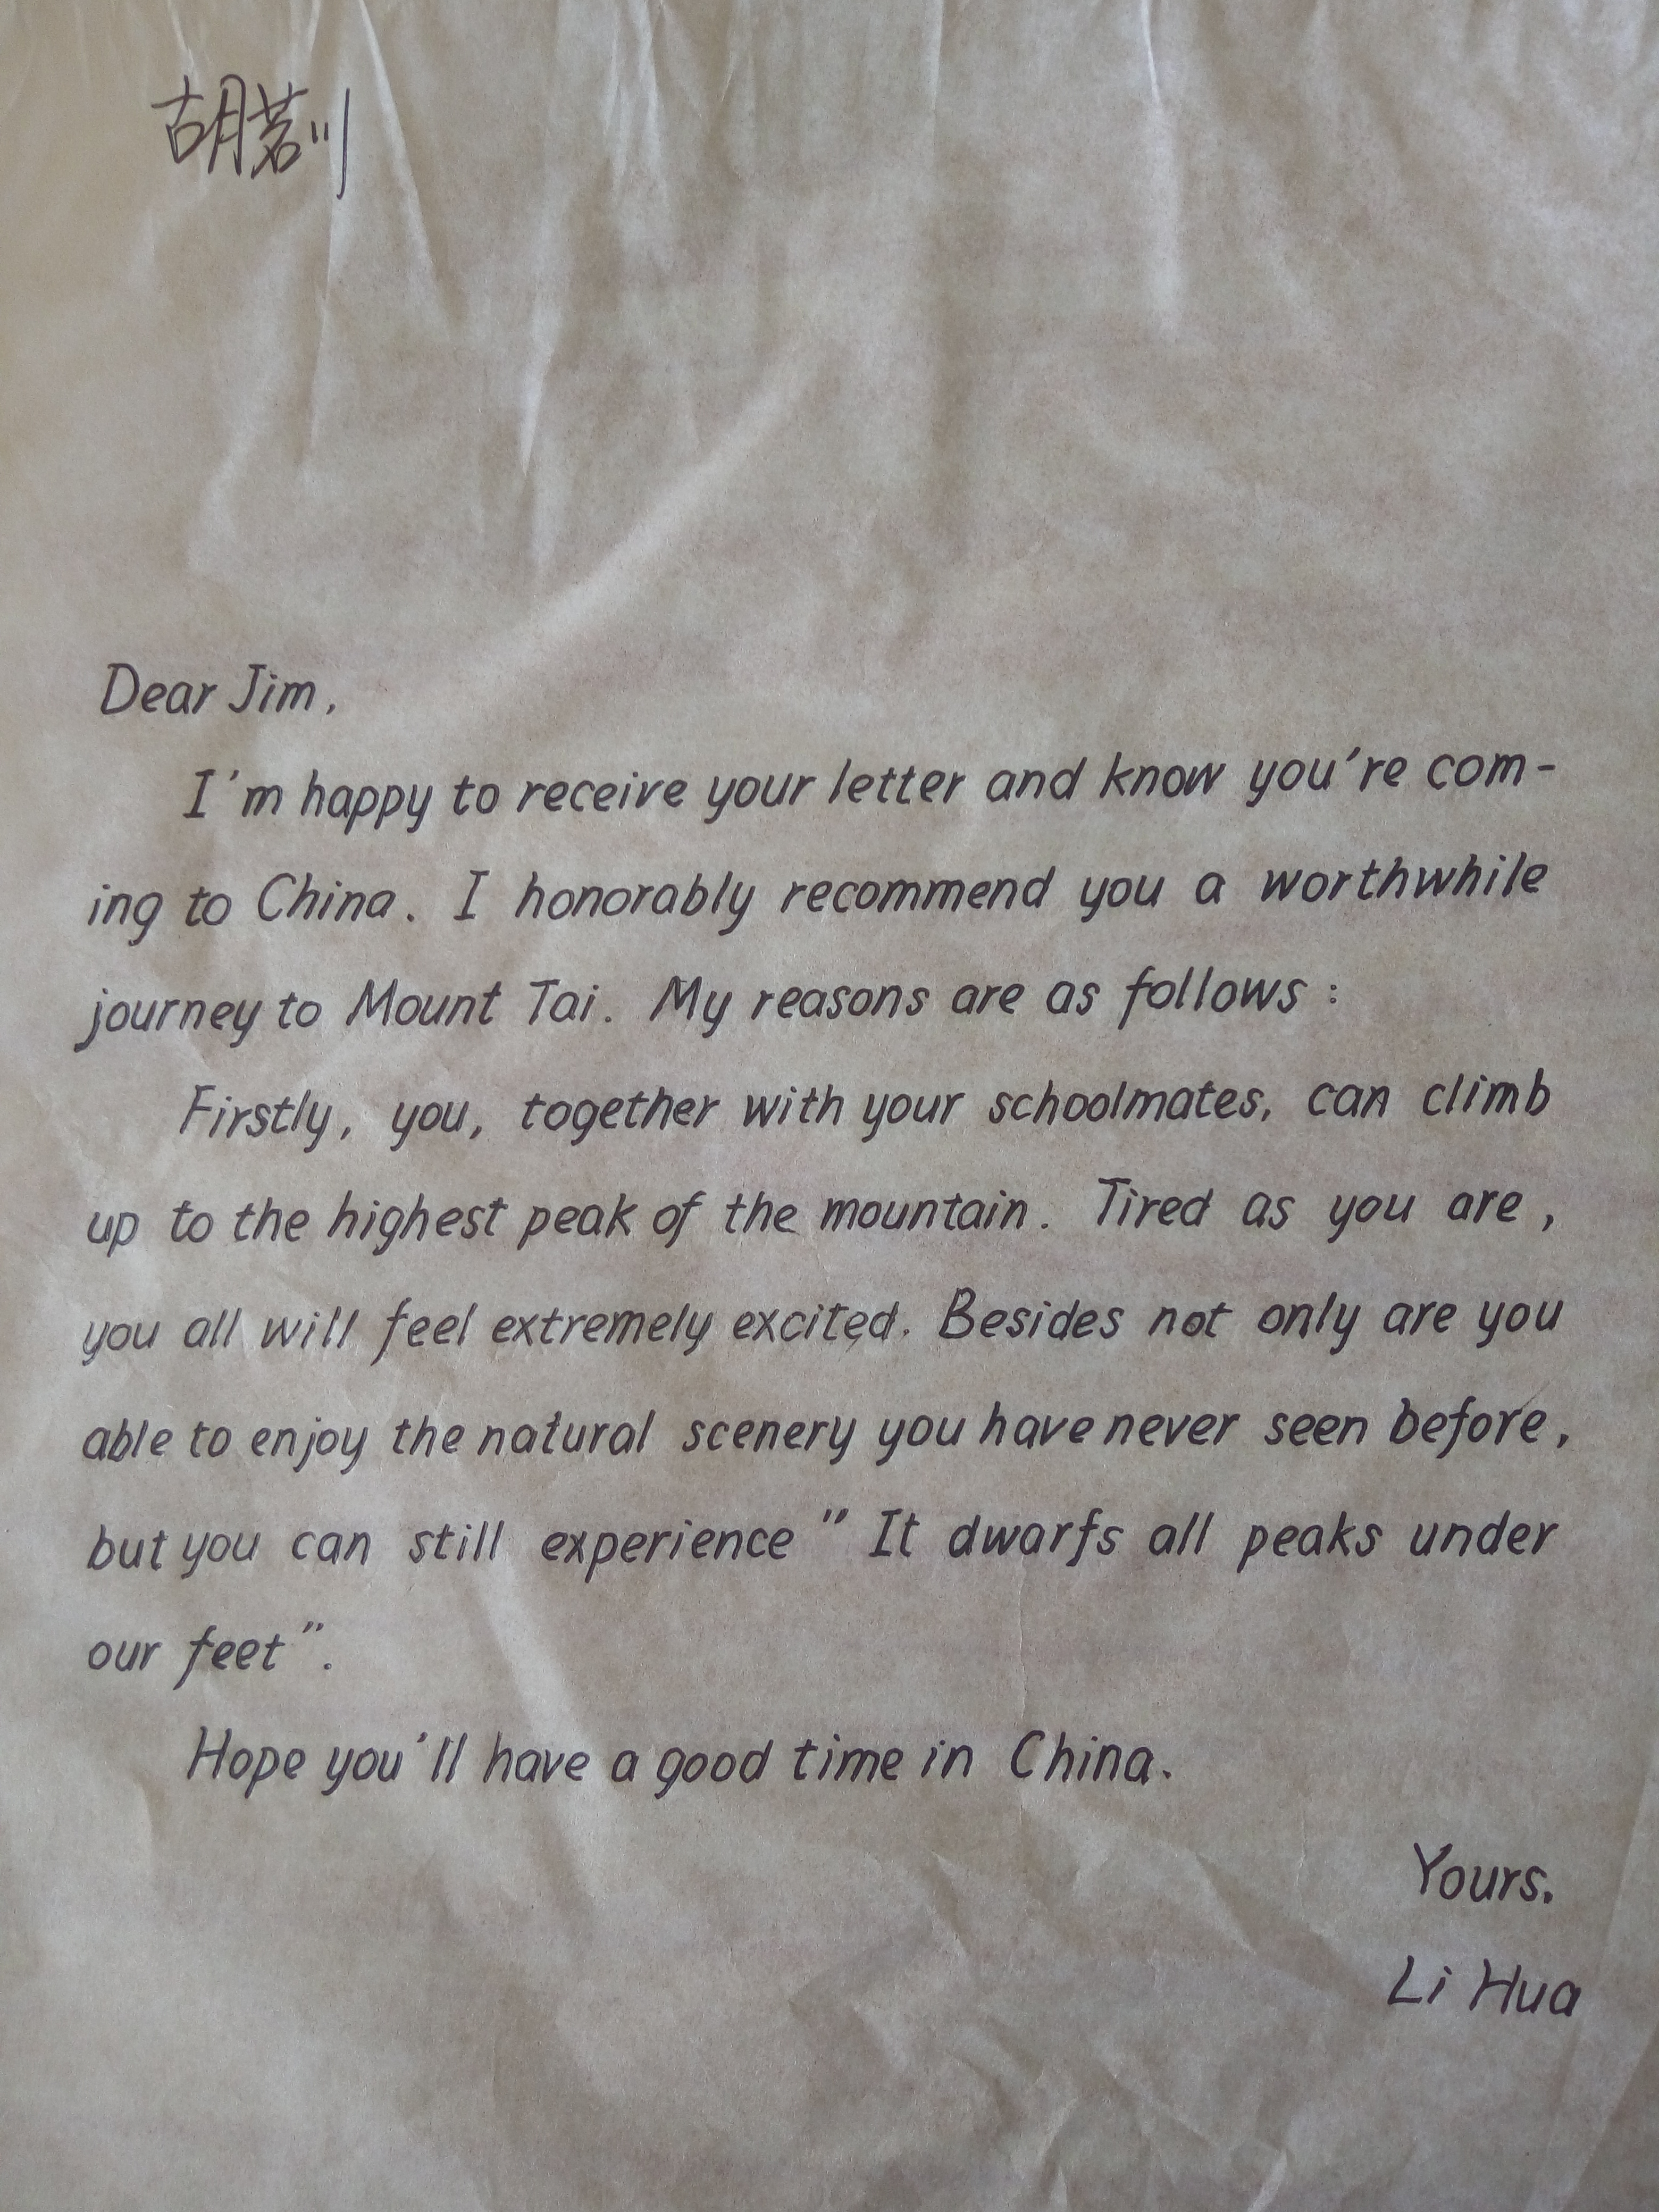 胡茗川
Dear Jim,
I'm happy to receive your letter and know you're com-
ing to China. I honorably recommend you a worthwhile
journey to Mount Tai. My reasons are as follows:
Firstly, you, together with your schoolmates, can climb
up to the highest peak of the mountain. Tired as you are,
you all will feel extremely excited. Besides not only are you
able to enjoy the natural scenery you have never seen before,
but you can still experience "It dwarfs all peaks under
our feet".
Hope you'll have a good time in China.
Yours.
Li Hua